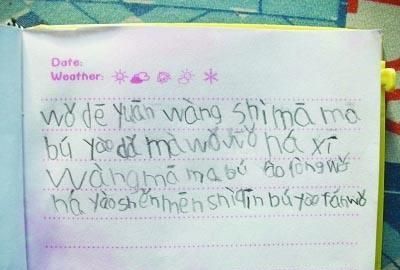 Date:
Weather:
wǒ dē yuān wàng shì mā mā
bú yào dǎ mà wǒ wǒ há xī
wàng mā ma bú dǎ tòng wǒ
há yào shěn mēn shì qīn bú yao fán wǒ